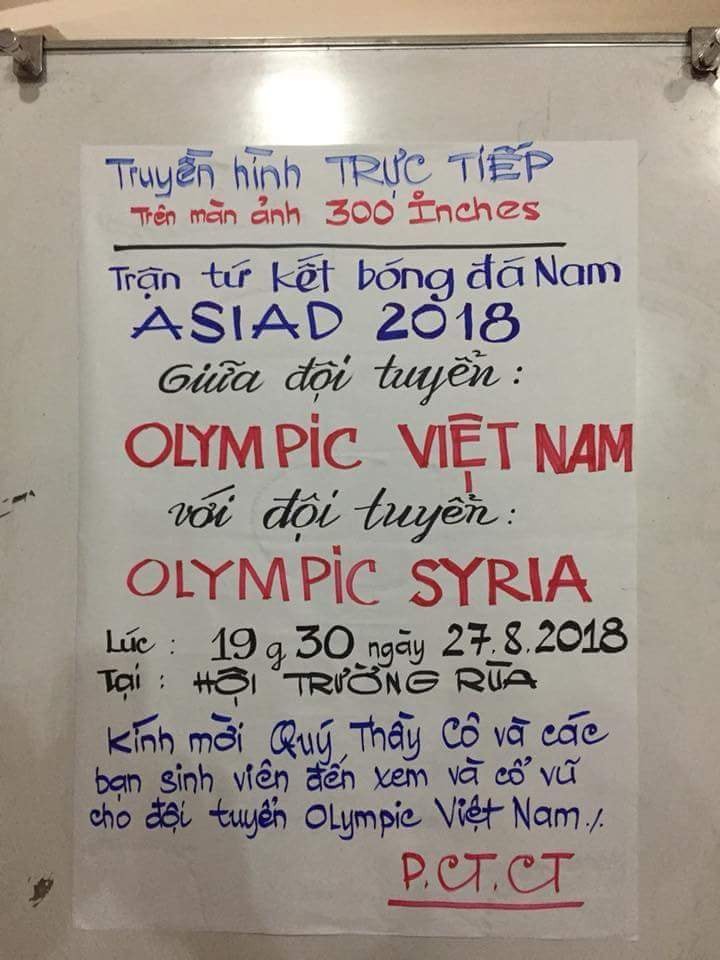 Truyền hình TRỰC TIẾP
Trên màn ảnh 300 Inches
Trận tứ kết bóng đá Nam
ASIAD 2018
Giữa đội tuyển :
OLYMPIC VIỆT NAM
với đội tuyển :
OLYMPIC SYRIA
Lúc : 19 g 30 ngày 27.8.2018
Tại : HỘI TRƯỜNG RÙA
Kính mời Quý Thầy Cô và các
bạn sinh viên đến xem và cổ vũ
cho đội tuyển Olympic Việt Nam./.
P.CT.CT